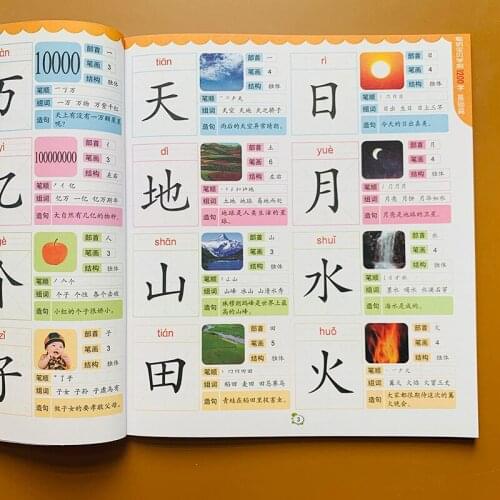 àn
万
10000
部首 一
笔画 3
结构 独体
笔顺
组词 一万 万物 万紫千红
造句 天上有没有一万颗星星呢?
yì
亿
100000000
部首 亻
笔画 3
结构 左右
笔顺 丿亻亿
组词 万亿 一亿 亿万斯年
造句 大自然有几亿的物种。
gè
个
部首 人
笔画 3
结构 独体
笔顺 丿人个
组词 个子 个性 各个击破
造句 小红的个子很娇小。
zǐ
子
部首 子
笔画 3
结构 独体
笔顺
组词 子女 子孙 子虚乌有
造句 做子女的要孝敬父母。
tiān
天
部首 一
笔画 4
结构 独体
笔顺
组词 天空 天地 天之骄子
造句 雨后的天空异常晴朗。
rì
日
部首 日
笔画 4
结构 独体
笔顺
组词 日出 生日 日上三竿
造句 今天的日出真美。
dì
地
部首 土
笔画 6
结构 左右
笔顺
组词 土地 地球 易地而处
造句 地球是人类生活的星球。
yuè
月
部首 月
笔画 4
结构 独体
笔顺
组词 月亮 月饼 花前月下
造句 月亮是地球的卫星。
shān
山
部首 山
笔画 3
结构 独体
笔顺
组词 山峰 冰山 山清水秀
造句 珠穆朗玛峰是世界上最高的山峰。
shuǐ
水
部首 水
笔画 4
结构 独体
笔顺
组词 墨水 喝水 水滴石穿
造句 海水是咸的。
tián
田
部首 田
笔画 5
结构 独体
笔顺
组词 稻田 麦田
造句 青蛙在稻田里捉害虫。
huǒ
火
部首 火
笔画 4
结构 独体
笔顺
组词 篝火 火焰 火冒三丈
造句 大家都很期待这次的篝火晚会。
聪明宝贝学前1200字 基础篇
3